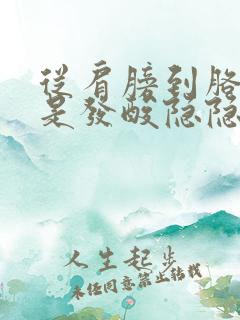 從肩膀到胳
是發酸隐隐
人生起步
未任同意禁止转載